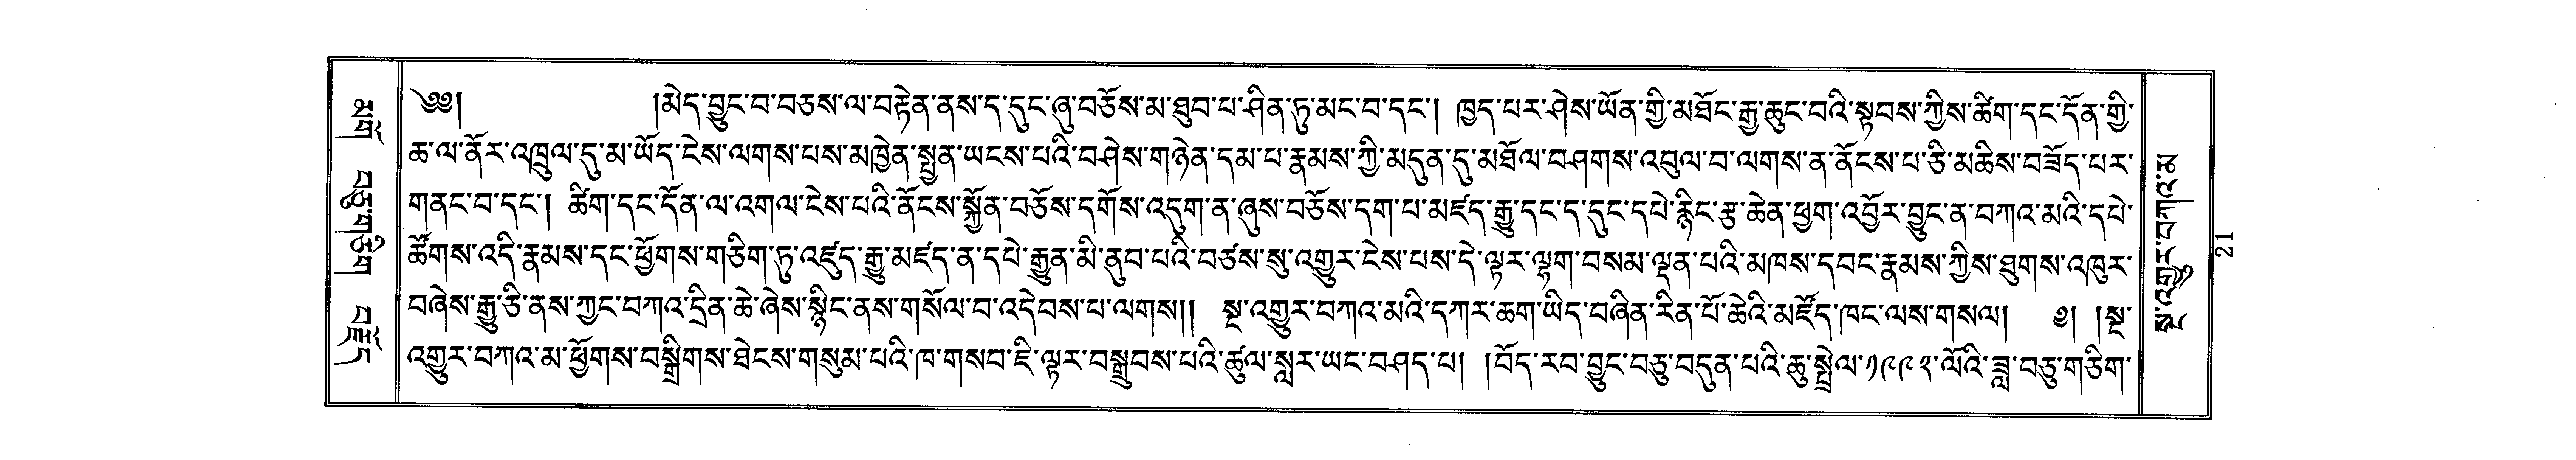 ༄༅། །མེད་བྱུང་བ་བཅས་ལ་བརྟེན་ནས་ད་དུང་ཞུ་བཅོས་མ་ཐུབ་པ་ཤིན་ཏུ་མང་བ་དང་། ཁྱད་པར་ཤེས་ཡོན་གྱི་མཐོང་རྒྱ་ཆུང་བའི་སྟབས་ཀྱིས་ཚིག་དང་དོན་གྱི་
ཆ་ལ་ནོར་འཁྲུལ་དུ་མ་ཡོད་ངེས་ལགས་པས་མཁྱེན་སྤྱན་ཡངས་པའི་བཤེས་གཉེན་དམ་པ་རྣམས་ཀྱི་མདུན་དུ་མཐོལ་བཤགས་འབུལ་བ་ལགས་ན་ནོངས་པ་ཅི་མཆིས་བཟོད་པར་
གནང་བ་དང་། ཚིག་དང་དོན་ལ་འགལ་ངེས་པའི་ནོངས་སྐྱོན་བཅོས་དགོས་འདུག་ན་ཞུས་བཅོས་དག་པ་མཛད་རྒྱུ་དང་ད་དུང་དཔེ་རྙིང་རྩ་ཆེན་ཕྱག་འབྱོར་བྱུང་ན་བཀའ་མའི་དཔེ་
ཚོགས་འདི་རྣམས་དང་ཕྱོགས་གཅིག་ཏུ་འཇུད་རྒྱུ་མཛད་ན་དཔེ་རྒྱུན་མི་ནུབ་པའི་བཙས་སུ་འགྱུར་ངེས་པས་དེ་ལྟར་ལྷག་བསམ་ལྡན་པའི་མཁས་དབང་རྣམས་ཀྱིས་ཐུགས་འཁུར་
བཞེས་རྒྱུ་ཅི་ནས་ཀྱང་བཀའ་དྲིན་ཆེ་ཞེས་སྙིང་ནས་གསོལ་བ་འདེབས་པ་ལགས།། སྔ་འགྱུར་བཀའ་མའི་དཀར་ཆག་ཡིད་བཞིན་རིན་པོ་ཆེའི་མཛོད་ཁང་ལས་གསལ། ༡། །སྔ་
འགྱུར་བཀའ་མ་ཕྱོགས་བསྒྲིགས་ཐེངས་གསུམ་པའི་ཁ་གསབ་ཇི་ལྟར་བསྒྲུབས་པའི་ཚུལ་སླར་ཡང་བཤད་པ། །བོད་རབ་བྱུང་བཅུ་བདུན་པའི་ཆུ་སྤྲེལ་༡༩༩༢་ལོའི་ཟླ་བཅུ་གཅིག་
21